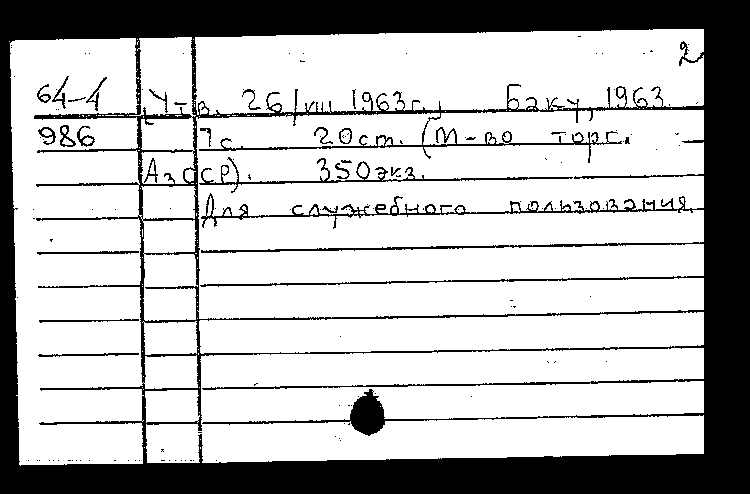 2
64-4 Утв. 26/VIII 1963г., Баку, 1963
986 7с. 20см. (М-во торг.
АзССР). 350экз.
Для служебного пользования